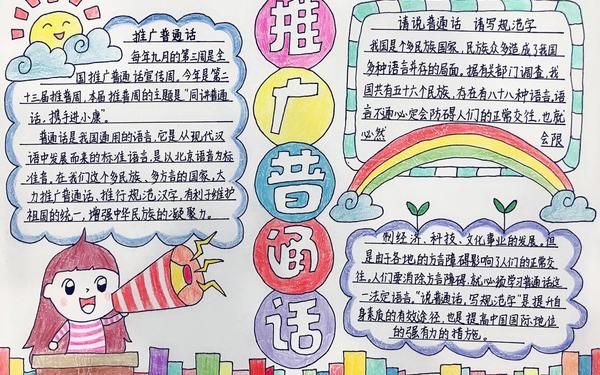 推广普通话
每年九月的第三周是全
国推广普通话宣传周，今年是第二
十三届推普周，本届推普周的主题是“同讲普通
话，携手进小康”。
普通话是我国通用的语言，它是从现代汉
语中发展而来的标准语言，是以北京语言为标
准音，在我们这个多民族、多方言的国家，大
力推广普通话、推行规范汉字，有利于维护
祖国的统一，增强中华民族的凝聚力。
推
广
普
通
话
请说普通话 请写规范字
我国是个多民族国家，民族众多造成了我国
多种语言并存的局面。据有关部门调查，我
国共有五十六个民族，存在有八十八种语言，语
言不通必定会防碍人们的正常交往，也就
必然 会限
制经济、科技、文化事业的发展。但
是由于各地的方言障碍影响了人们的正常交
往。人们要消除方言障碍，就必须学习普通话这
一法定语言。“说普通话，写规范字”是提升自
身素质的有效途径，也是提高中国国际地位
的强有力的措施。